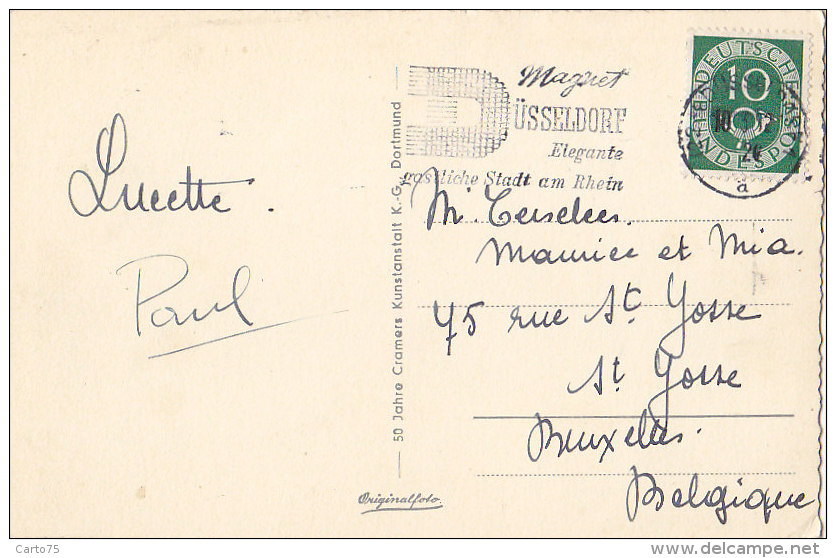 Lucette.
Paul
50 Jahre Cramers Kunstanstalt K.-G., Dortmund
Originalfoto.
Magnet
DÜSSELDORF
Elegante
gastliche Stadt am Rhein
DEUTSCHE
BUNDESPOST
10
a
M.
Maurice et Mia.
75 rue St Josse
St Josse
Bruxelles.
Belgique
Carto75
www.delcampe.net